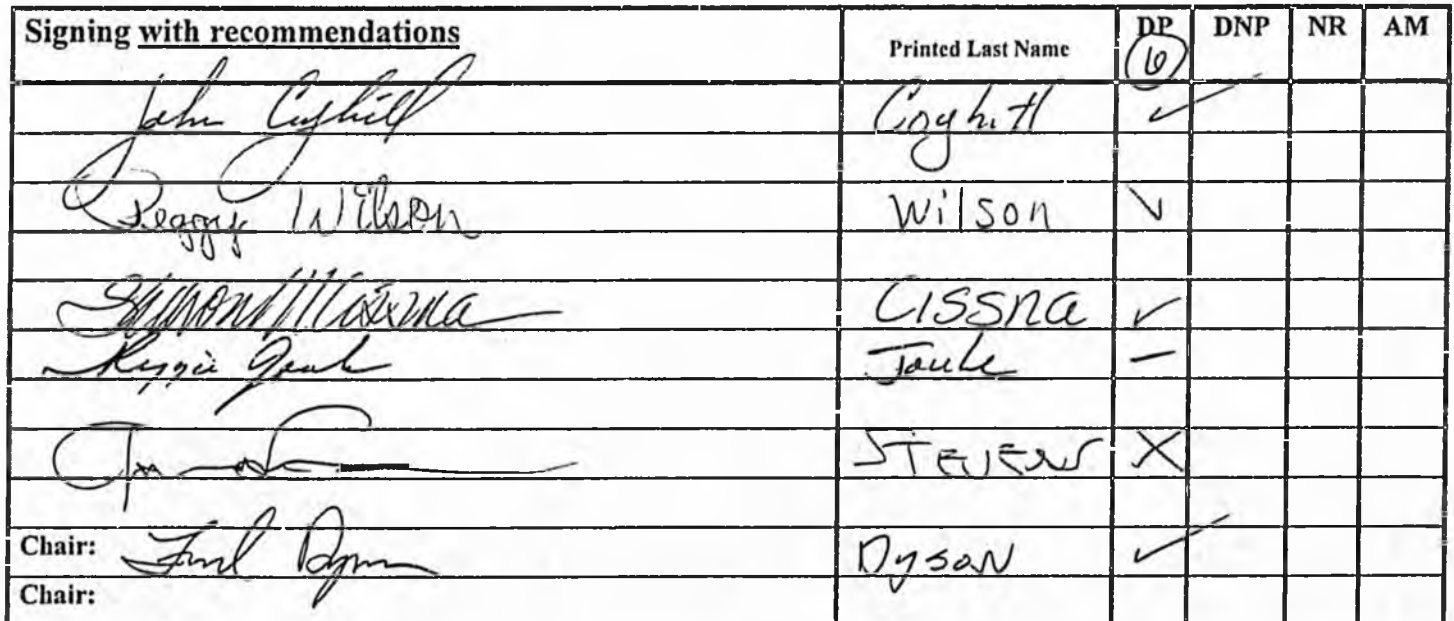 Signing with recommendations Printed Last Name DP DNP NR AM
(6)
John Coghill Coghill ✓
Peggy Wilson Wilson ✓
Cissna ✓
Reggie Joule Joule –
Stevens X
Chair: Fred Dyson Dyson ✓
Chair: